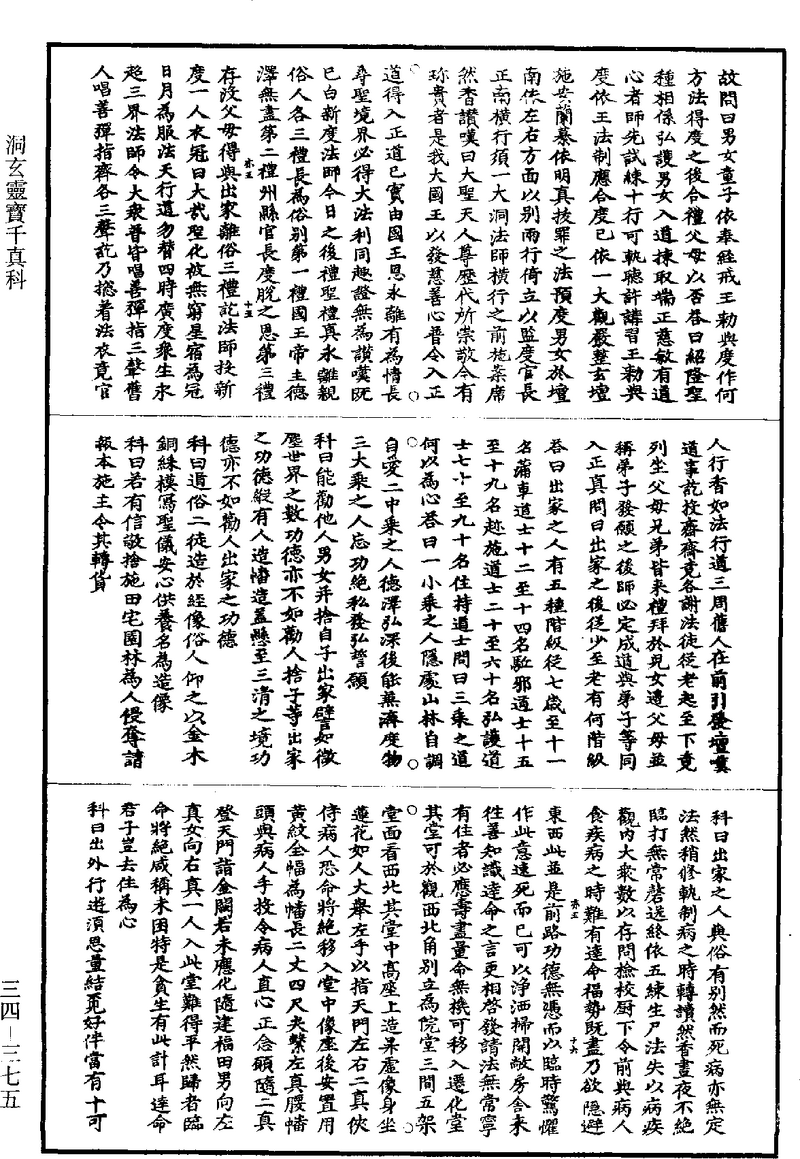 洞玄靈寶千真科
三四－三七五
故問曰男女童子依奉經戒王勑與度作何
方法得度之後合禮父母以否荅曰紹隆聖
種相係弘護男女入道揀取端正慈敏有道
心者師先試練十行可軌聽許講習王勑與
度依王法制應合度已依一大觀嚴整玄壇
施安蘭纂依明真拔罪之法預度男女於壇
南依左右方面以別兩行倚立以監度官長
正南橫行須一大洞法師橫行之前施案席
然香讚嘆曰大聖天人尊歷代所崇敬今有
珎貴者是我大國王以發慈善心普令入正
道得入正道已寔由國王恩永離有為情長
尋聖境界必得大法利同趣證無為讚嘆既
已白新度法師今日之後禮聖禮真永離親
俗人各三禮長為俗別第一禮國王帝主德
澤無盡第二禮州縣官長度脫之恩第三禮
存沒父母得與出家離俗三禮訖法師授新
度一人衣冠曰大哉聖化被無窮星宿為冠
日月為服法天行道勿替四時廣度衆生永
超三界法師令大衆普皆唱善彈指三聲舊
人唱善彈指齊各三聲訖乃揔着法衣竟官
人行香如法行道三周舊人在前引登壇嘆
道事訖投齋齊竟各謝法徒從老起至下竟
列坐父母兄弟皆来禮拜於見女道父母並
稱弟子發願之後師必定成道與弟子等同
入正真問曰出家之後從少至老有何階級
荅曰出家之人有五種階級從七歲至十一
名蒲車道士十二至十四名駈邪道士十五
至十九名趂施道士二十至六十名弘護道
士七十至九十名住持道士問曰三乘之道
何以為心荅曰一小乘之人隱處山林自調
自愛二中乘之人德澤弘深後能兼濟度物
三大乘之人忘功絕私發弘誓願
科曰能勸他人男女并捨自子出家譬如微
塵世界之數功德亦不如勸人捨子等出家
之功德縱有人造幡造蓋懸至三清之境功
德亦不如勸人出家之功德
科曰道俗二徒造於經像俗人仰之以金木
銅絲模寫聖儀安心供養名為造像
科曰若有信敬捨施田宅園林為人侵奪請
報本施主令其轉貨
科曰出家之人與俗有別然而死病亦無定
法然稍修軌制病之時轉讀然香晝夜不絕
臨打無常磬送終依五練生尸法失以病疾
觀內大衆數以存問檢校厨下令前與病人
食疾病之時難有達命福勢既盡乃欲隱避
東西此並是前路功德無憑而以臨時驚懼
作此意逺死而已可以淨洒掃開敞房舍来
徃善知識達命之言更相啓發請法無常寧
有住者必應壽盡量命無機可移入遷化堂
其堂可於觀西北角別立為院堂三間五架
堂面看西北其堂中高座上造杲虛像身坐
蓮花如人大舉左手以指天門左右二真俠
侍病人恐命將絕移入堂中像座後安置用
黃紋全幅為幡長二丈四尺夫繫左真腰幡
頭與病人手投令病人直心正念願隨二真
登天門詣金闕若未應化隨建福田男向左
真女向右真一人入此堂難得平然歸者臨
命將絕咸稱未困特是貪生有此計耳達命
君子豈去住為心
科曰出外行逰湏思量結覔好伴當有十可
亦五
十五
亦五
十六